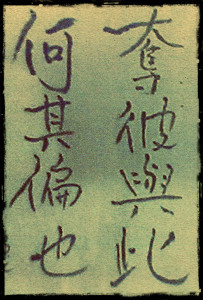 奪彼與此
何其偏也